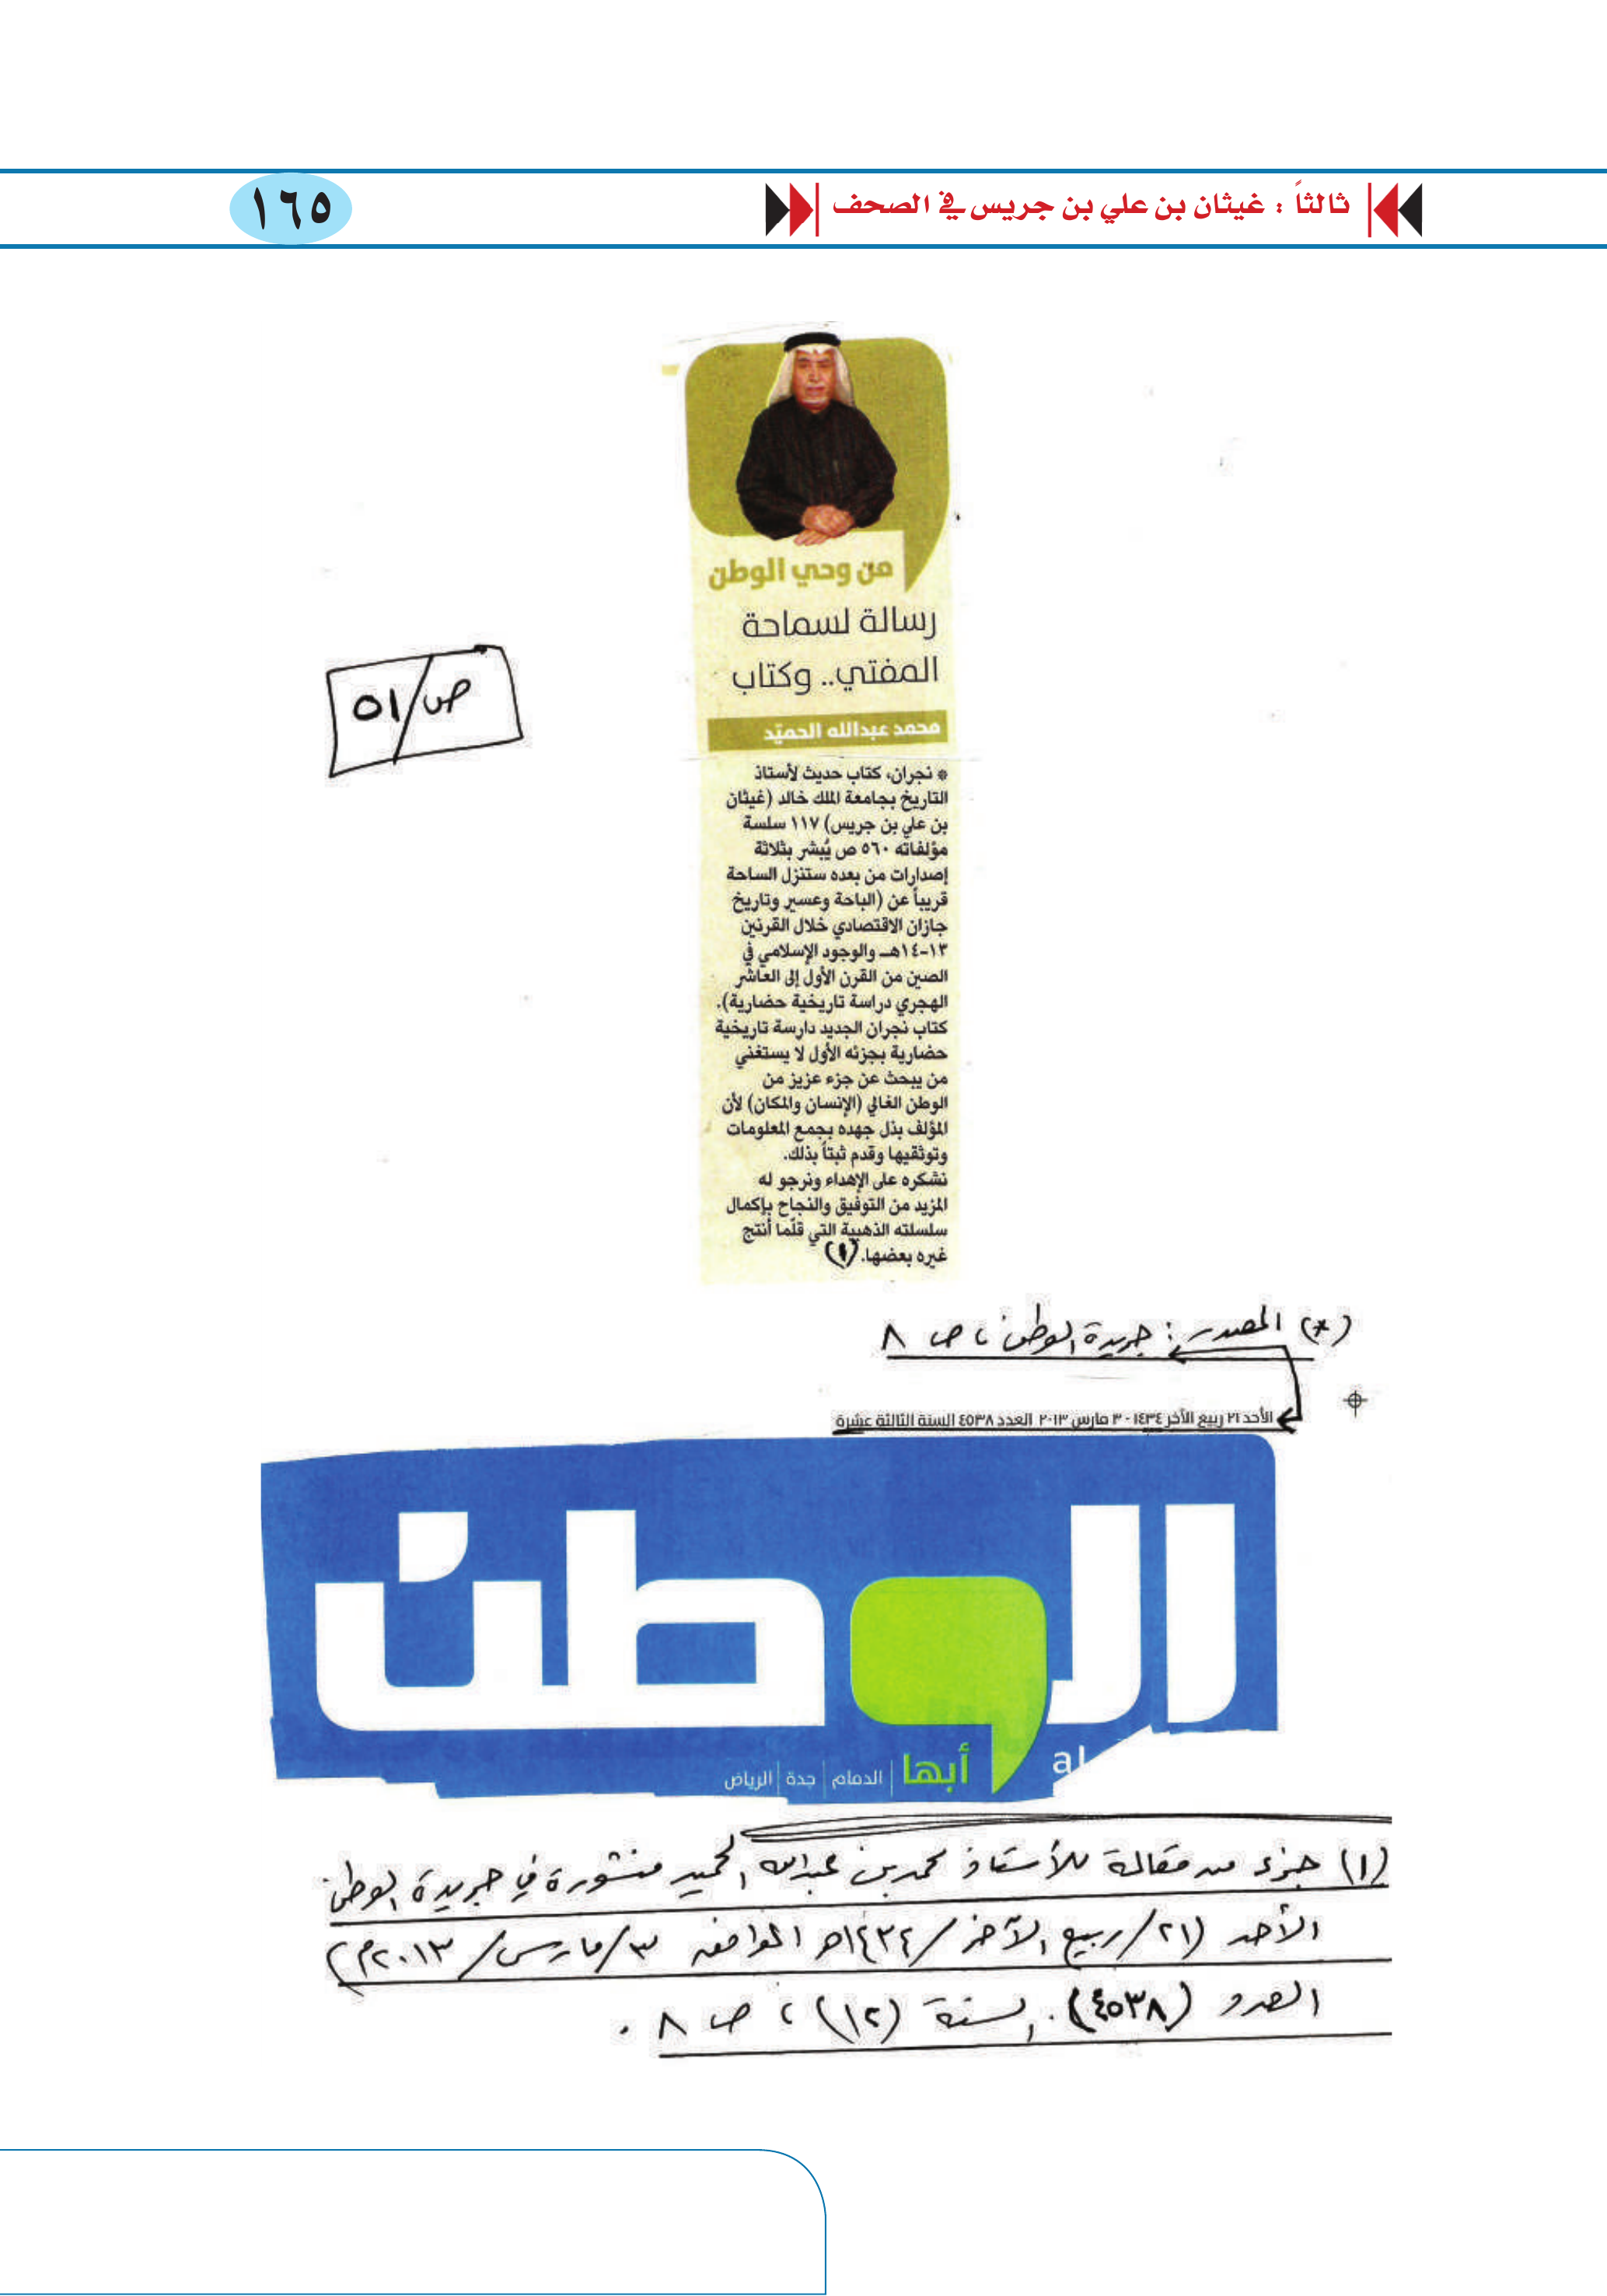 ثالثاً : غيثان بن علي بن جريس في الصحف
١٦٥
من وحي الوطن
رسالة لسماحة
المفتي.. وكتاب
محمد عبدالله الحميّد
ص/٥١
* نجران، كتاب حديث لأستاذ
التاريخ بجامعة الملك خالد (غيثان
بن علي بن جريس) ١١٧ سلسة
مؤلفاته ٥٦٠ ص يُبشر بثلاثة
إصدارات من بعده ستنزل الساحة
قريباً عن (الباحة وعسير وتاريخ
جازان الاقتصادي خلال القرنين
١٣-١٤هـ والوجود الإسلامي في
الصين من القرن الأول إلى العاشر
الهجري دراسة تاريخية حضارية).
كتاب نجران الجديد دارسة تاريخية
حضارية بجزئه الأول لا يستغني
من يبحث عن جزء عزيز من
الوطن الغالي (الإنسان والمكان) لأن
المؤلف بذل جهده بجمع المعلومات
وتوثقيها وقدم ثبتاً بذلك.
نشكره على الإهداء ونرجو له
المزيد من التوفيق والنجاح بإكمال
سلسلته الذهبية التي قلّما أنتج
غيره بعضها. (١)
(*) المصدر : جريدة الوطن ، ص ٨
الأحد ٢١ ربيع الآخر ١٤٣٤ - ٣ مارس ٢٠١٣ العدد ٤٥٣٨ السنة الثالثة عشرة
الوطن
al
أبها | الدمام | جدة | الرياض
(١) جزء من مقالة للأستاذ محمد بن عبدالله الحميد منشورة في جريدة الوطن
الأحد (٢١/ربيع الآخر/١٤٣٤هـ الموافق ٣/مارس/٢٠١٣م)
العدد (٤٥٣٨). السنة (١٢) ، ص ٨ .